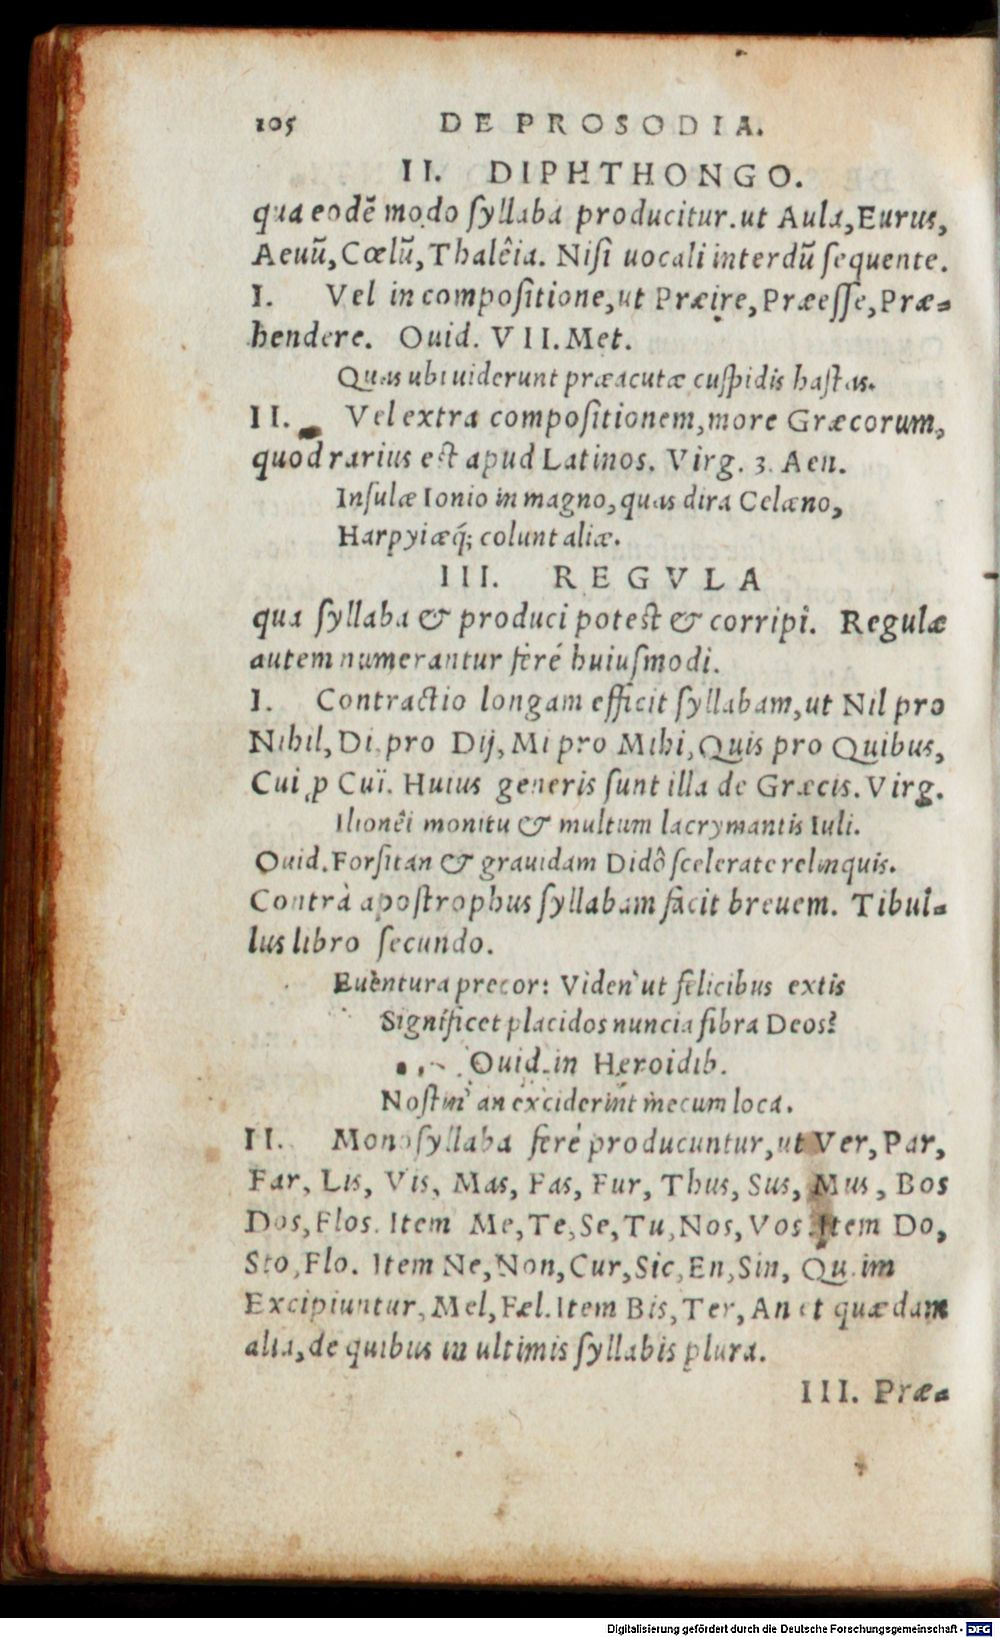 105 DE PROSODIA.
II. DIPHTHONGO.
qua eodē modo ſyllaba producitur.ut Aula,Eurus,
Aeuū,Cœlū,Thalêia. Niſi uocali interdū ſequente.
I. Vel in compoſitione,ut Præire,Præeſſe,Præ-
hendere. Ouid. VII.Met.
Quas ubi uiderunt præacutæ cuſpidis haſtas.
II. Vel extra compoſitionem,more Græcorum,
quod rarius eſt apud Latinos. Virg. 3. Aen.
Inſulæ Ionio in magno,quas dira Celæno,
Harpyiæq́; colunt aliæ.
III. REGVLA
qua ſyllaba & produci poteſt & corripi. Regulæ
autem numerantur feré huiuſmodi.
I. Contractio longam efficit ſyllabam,ut Nil pro
Nihil,Di,pro Dij,Mi pro Mihi,Quis pro Quibus,
Cui ꝓ Cuï. Huius generis ſunt illa de Græcis.Virg.
Ilionêi monitu & multum lacrymantis Iuli.
Ouid.Forſitan & grauidam Didô ſcelerate relinquis.
Contrà apoſtrophus ſyllabam facit breuem. Tibul-
lus libro ſecundo.
Euentura precor: Viden' ut felicibus extis
Significet placidos nuncia fibra Deos?
Ouid.in Heroidib.
Noſtin' an exciderint mecum loca.
II. Monoſyllaba feré producuntur,ut Ver,Par,
Far, Lis, Vis, Mas, Fas, Fur, Thus, Sus, Mus, Bos
Dos,Flos. Item Me,Te,Se,Tu,Nos,Vos.Item Do,
Sto,Flo. Item Ne,Non,Cur,Sic,En,Sin, Quim
Excipiuntur,Mel,Fæl.Item Bis,Ter,An et quædam
alia,de quibus in ultimis ſyllabis plura.
III. Præ-
Digitalisierung gefördert durch die Deutsche Forschungsgemeinschaft - DFG